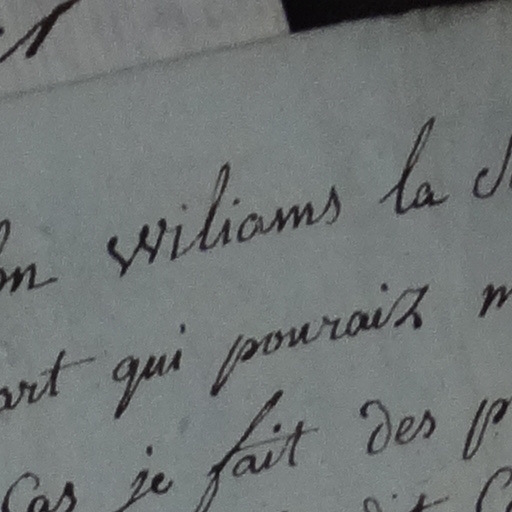 wiliams la
art qui pouraiz
Cas je fait des